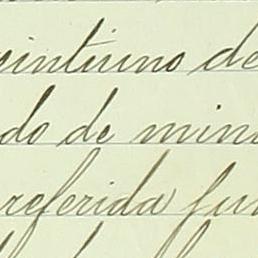 veintiuno de
do de min
referida fun